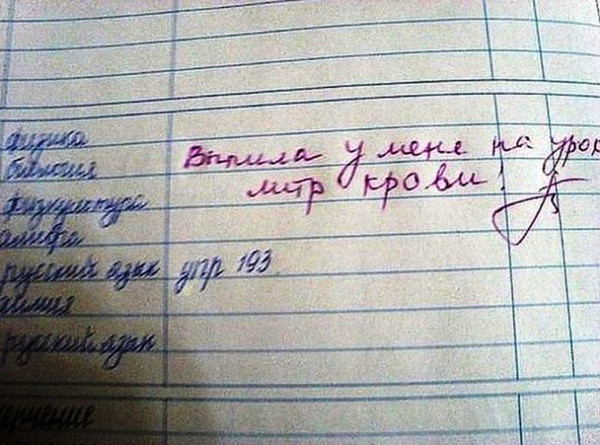 физика
биология
Выпила у мене на урок
физкультура
литр крови!
алгебра
русский язык упр 193
химия
русский язык
ерчение